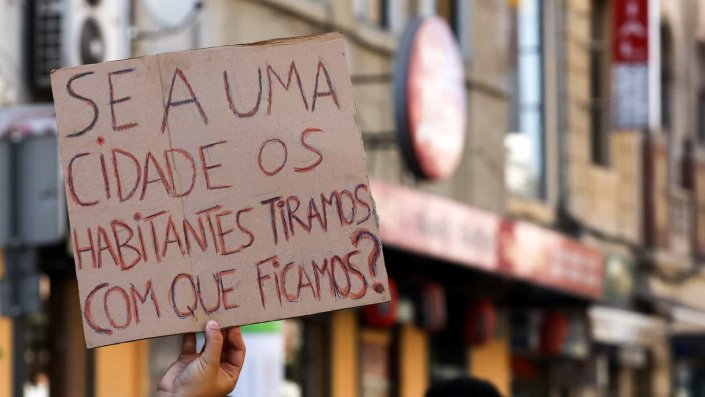 SE A UMA
CIDADE OS
HABITANTES TIRAMOS
COM QUE FICAMOS?